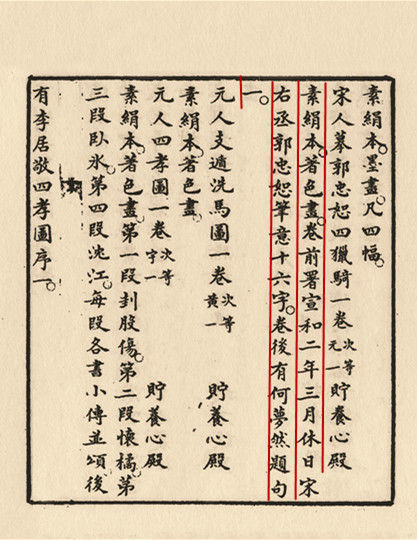 素絹本。墨畫。凡四幅。
宋人摹郭忠恕四獵騎一卷 次等元一 貯養心殿
素絹本。著色畫。卷前署宣和二年三月休日宋
右丞郭忠恕筆意十六字。卷後有何夢然題句
一。
元人支遁洗馬圖一卷 次等黃一 貯養心殿
素絹本。著色畫。
元人四孝圖一卷 次等宇一 貯養心殿
素絹本。著色畫。第一段刲股傷。第二段懷橘。第
三段臥氷。第四段沈江。每段各書小傳並頌後
有李居敬四孝圖序一。